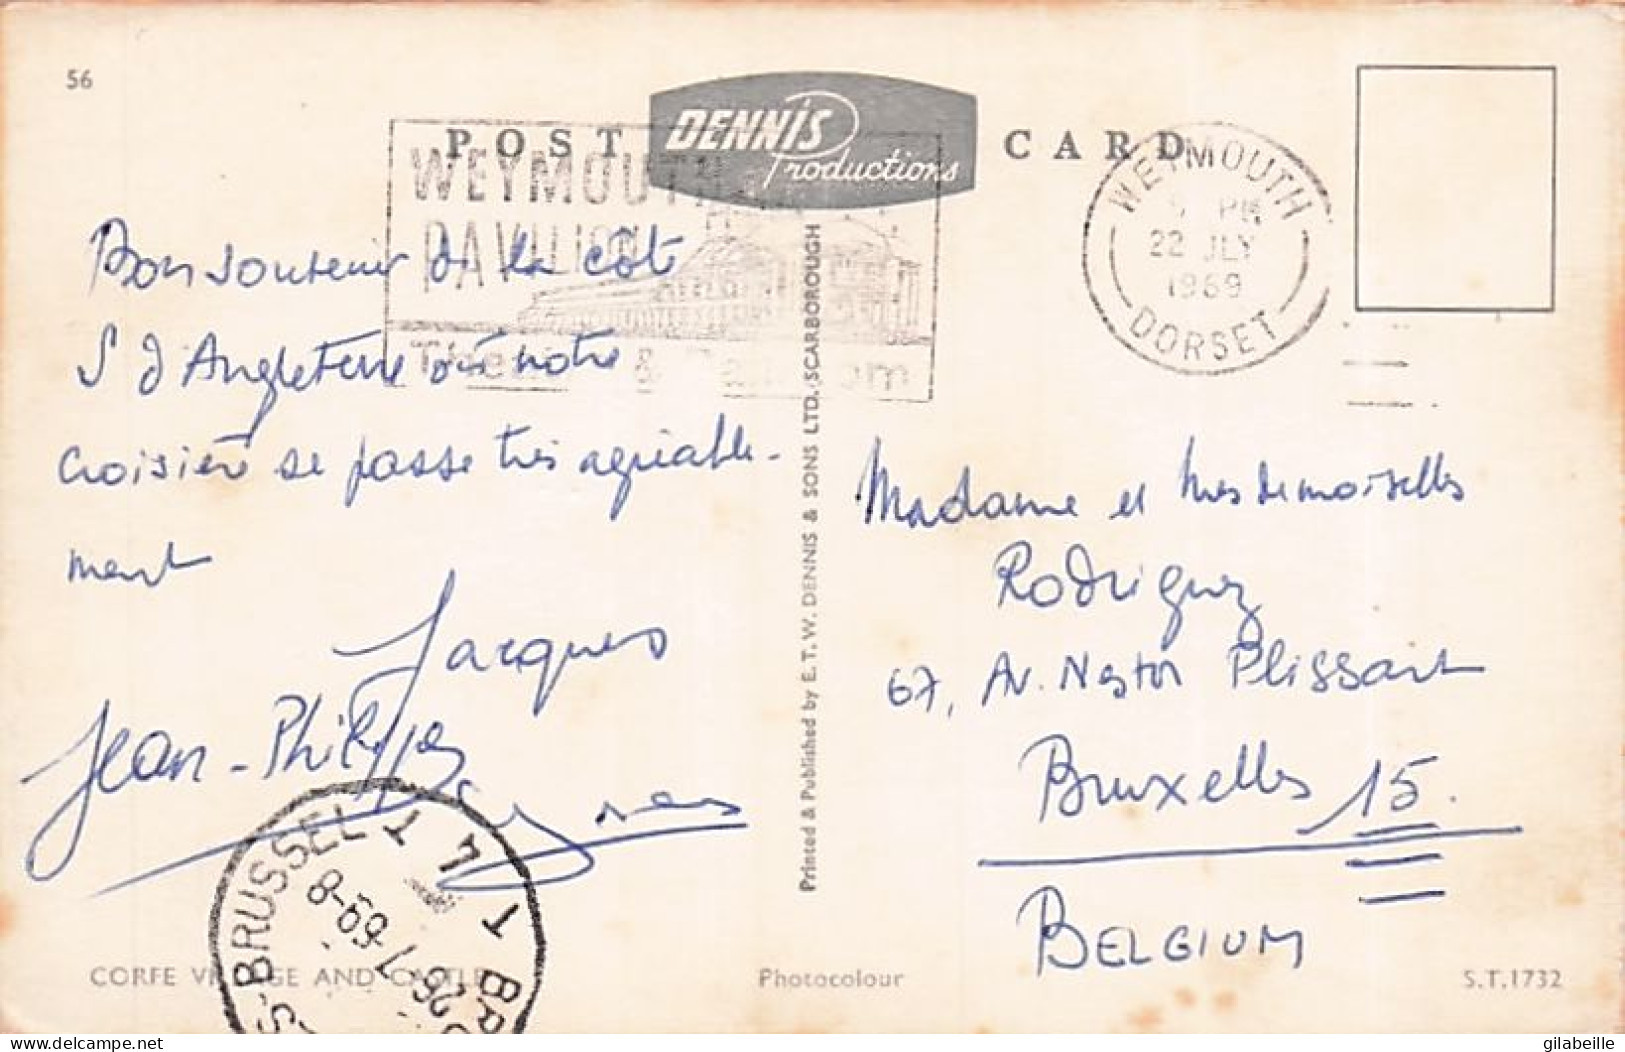 56
POST CARD
DENNIS
Productions
WEYMOUTH
PAVILION
WEYMOUTH
PM
22 JLY
1969
DORSET
Bon souvenir de la côte
S d'Angleterre où notre
croisière se passe très agréable-
ment
Jacques
Jean-Philippe
Agnes
Madame et Mesdemoiselles
Rodriguez
67, Av. Nestor Plissart
Bruxelles 15.
BELGIUM
Printed & Published by E. T. W. DENNIS & SONS LTD. SCARBOROUGH
BRUSSEL T 4 T BR
26-7-69-8
CORFE VILLAGE AND CASTLE
Photocolour
S.T.1732
delcampe.net
gilabeille